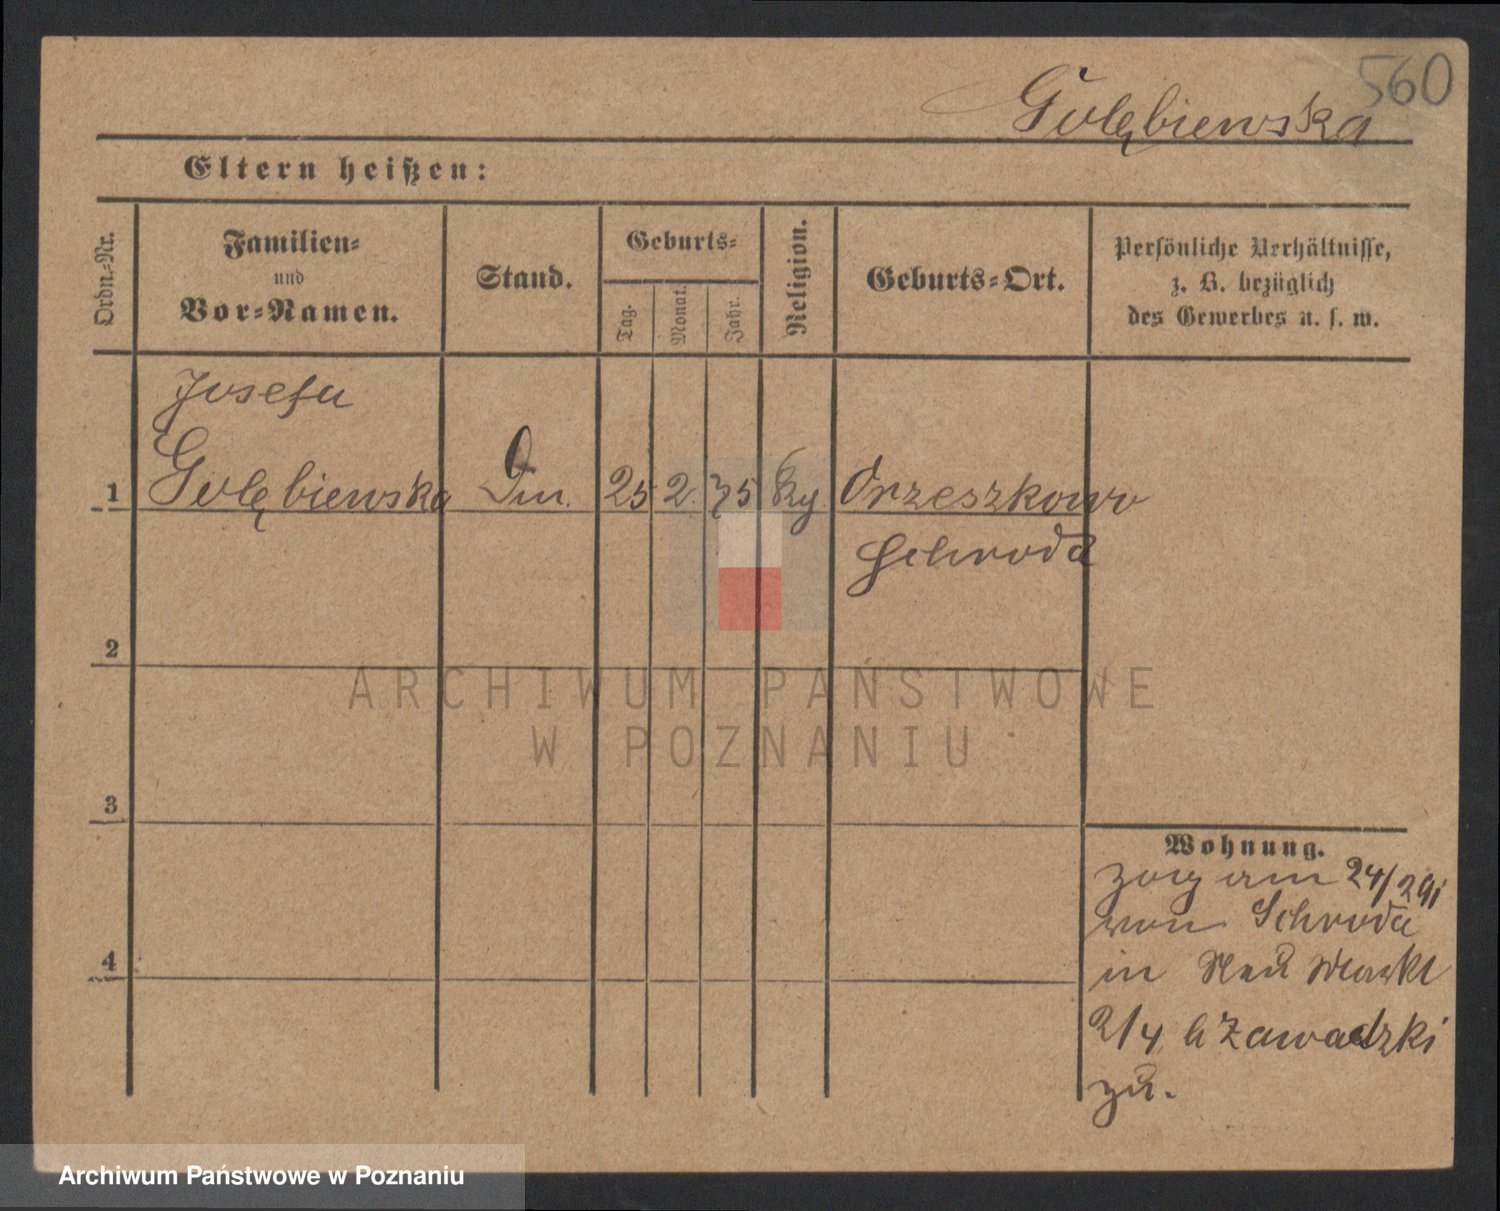 560
Golębiewska
Eltern heißen:
Ordn.-Nr.
Familien-
und
Vor-Namen.
Stand.
Geburts-
Tag.
Monat.
Jahr.
Religion.
Geburts-Ort.
Persönliche Verhältnisse,
z. B. bezüglich
des Gewerbes u. s. w.
Josefa
1 Golębiewska 25 2 75 Orzeszkowo
Schroda
2
3
4
ARCHIWUM PAŃSTWOWE
W POZNANIU
Wohnung.
zog am 24/2 91
von Schroda
in Neu Markt
2/4 b Zawadzki
zu.
Archiwum Państwowe w Poznaniu